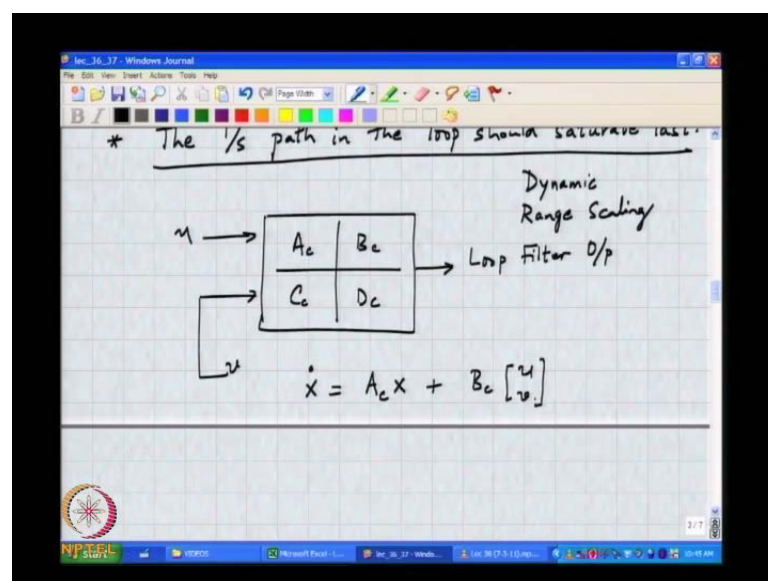 lec_36_37 - Windows Journal
File Edit View Insert Actions Tools Help
Page Width
B I
* The 1/s path in the loop should saturate last.
Dynamic
Range Scaling
u → Ac Bc → Loop Filter O/p
Cc Dc
v
ẋ = Ac x + Bc [u
v]
2/7
NPTEL
Start VIDEOS Microsoft Excel - L... lec_36_37 - Windo... Lec 38 (7-3-11).mp... 10:45 AM